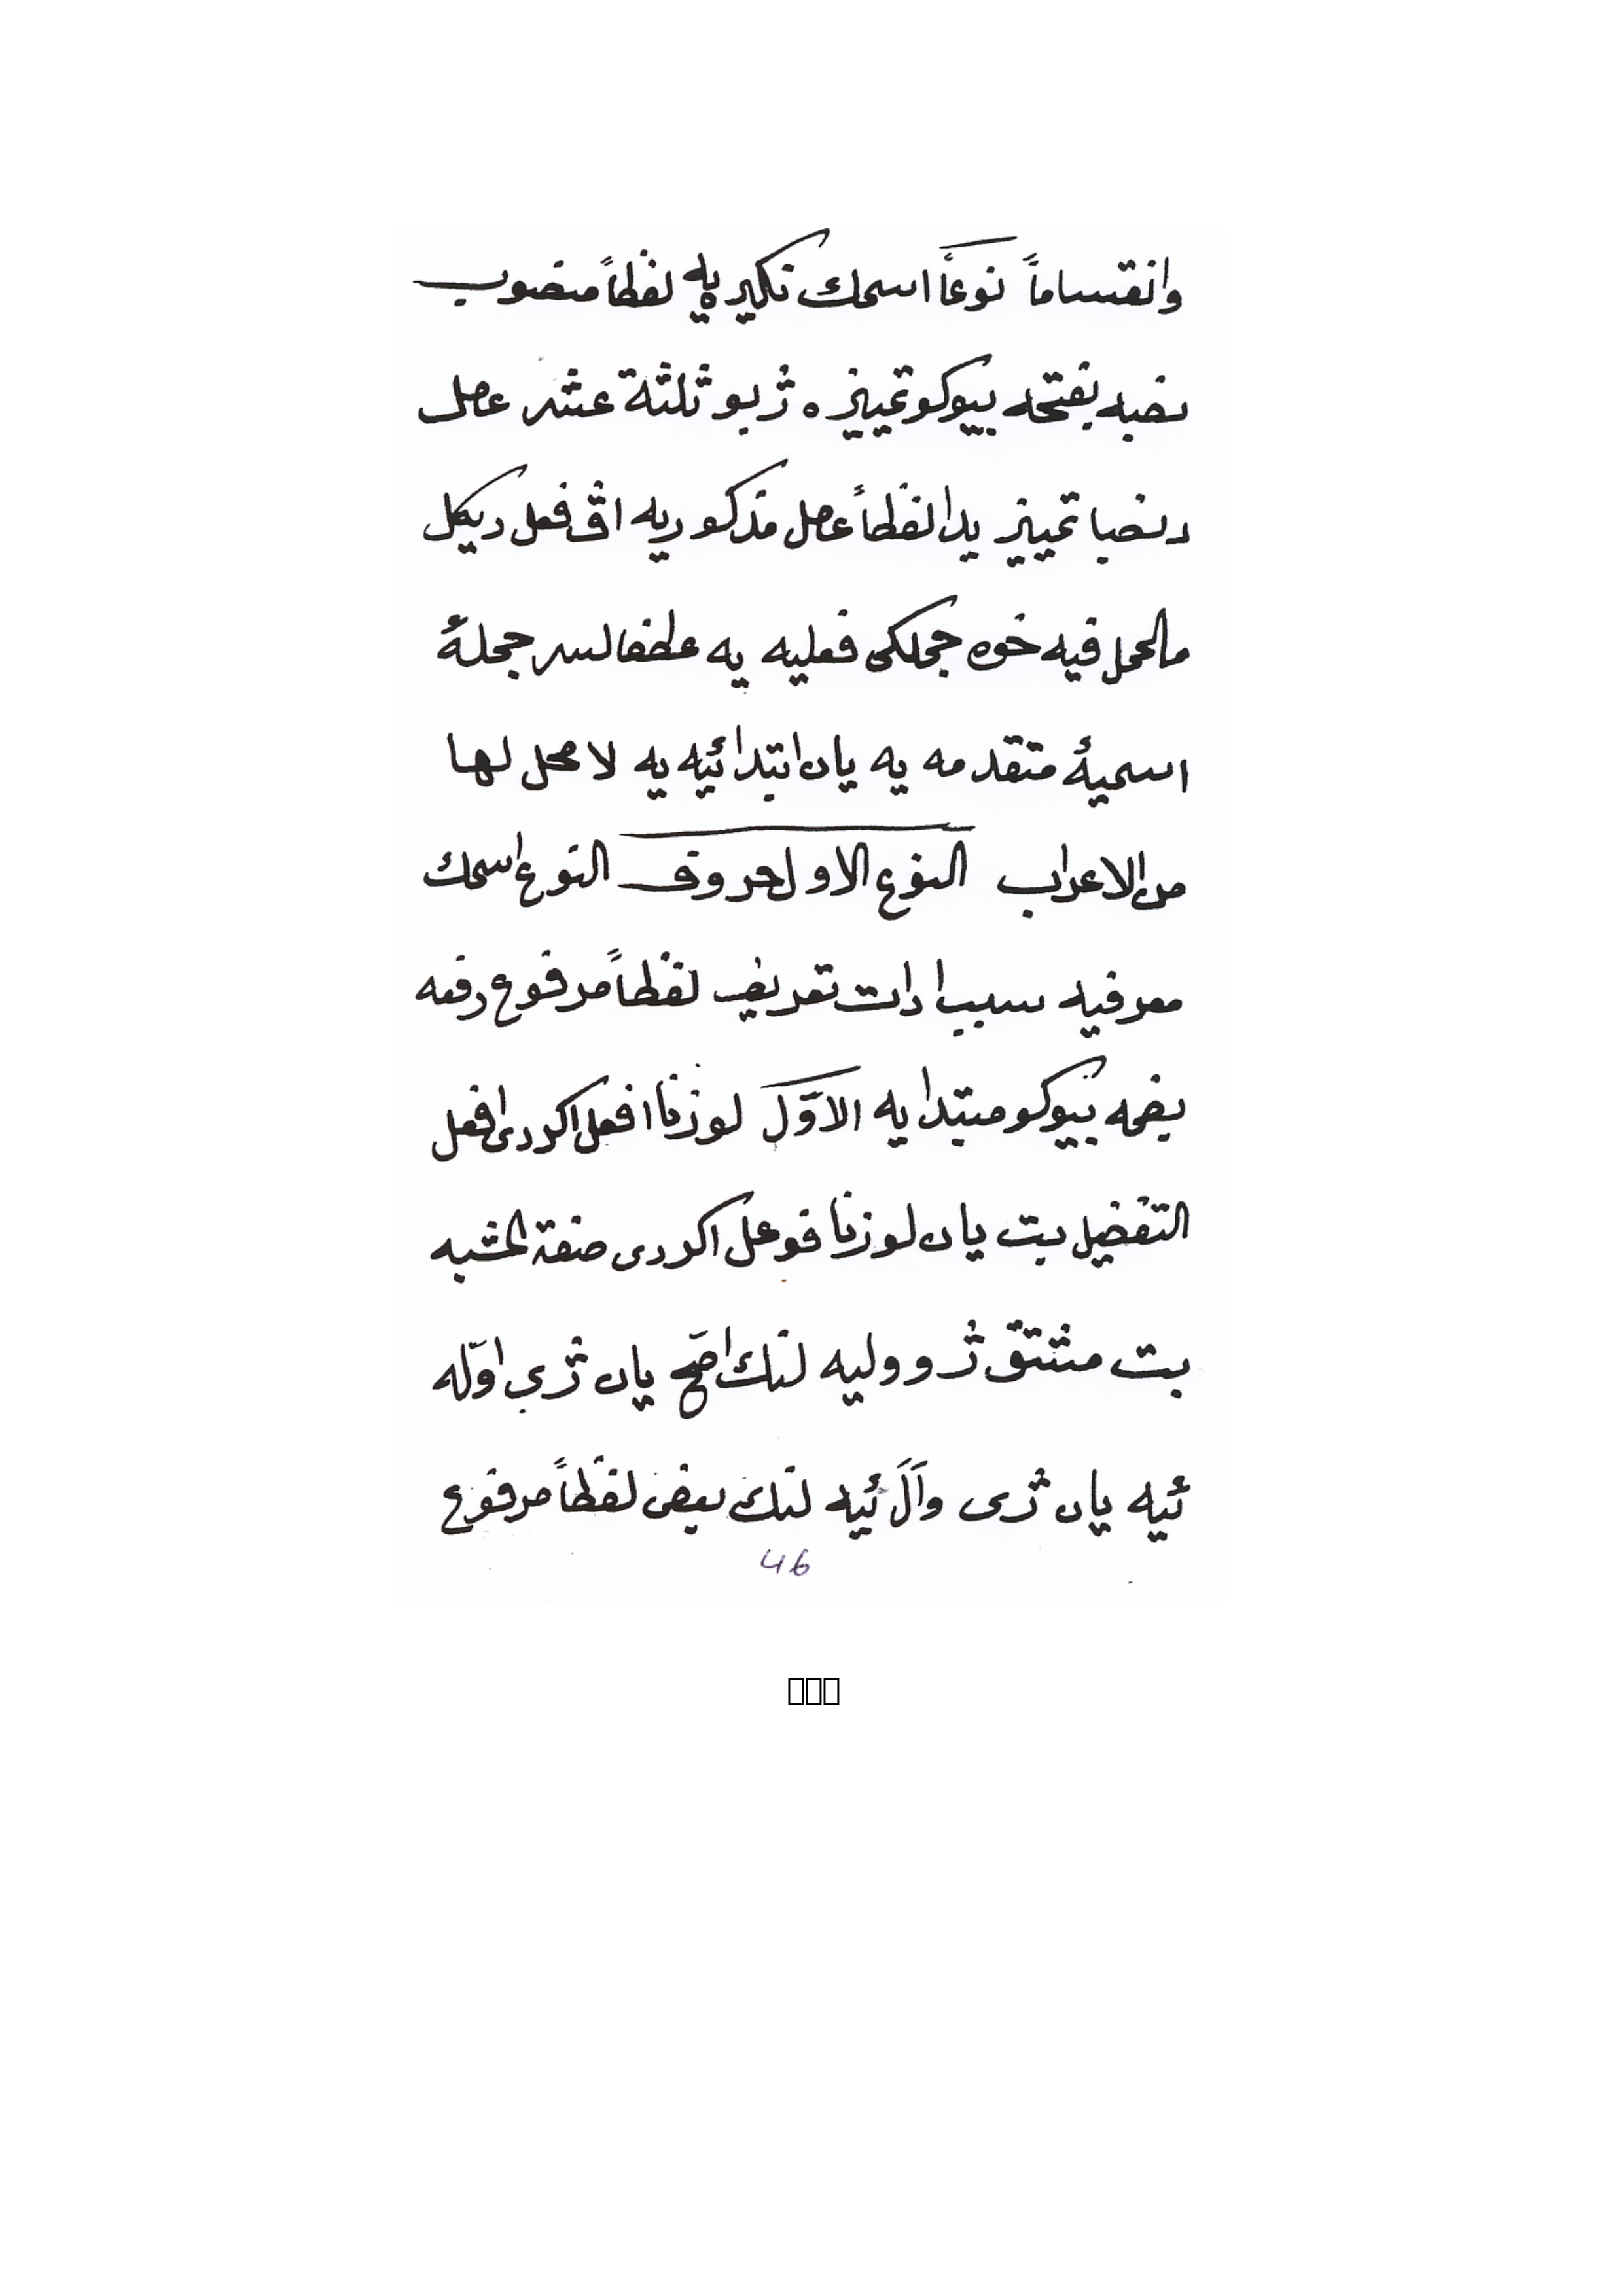 وانقساماً نوعاً اسمك نكير يه لفظاً منصوب
نصبه بفتحه بيوكو تمييزه ژبو ثلثة عشر عصل
دنصبا تمييز يدا لفظاً عصل مذكور يه اڨ فعل ديكل
مالحمل فيه خوه جملكى فعليه يه عطفا لسر جملهٔ
اسميهٔ متقدمه يه يان ابتدائيه يه لا محل لها
من الاعراب النوع الاول حروف النوع اسمك
معرفيه سببا دات تعريف لفظاً مرفوع رفعه
بضمه بيوكو مبتدا يه الاوّل لوزنا افعل اكردى افعل
التفضيل بت يان لوزنا فوعل اكردى صفة المشبه
بت مشتق ژ ووليه لنك اصح يان ژى اوّله
ئيه يان ژى وآل ئيه لنك بعض لفظاً مرفوع
46